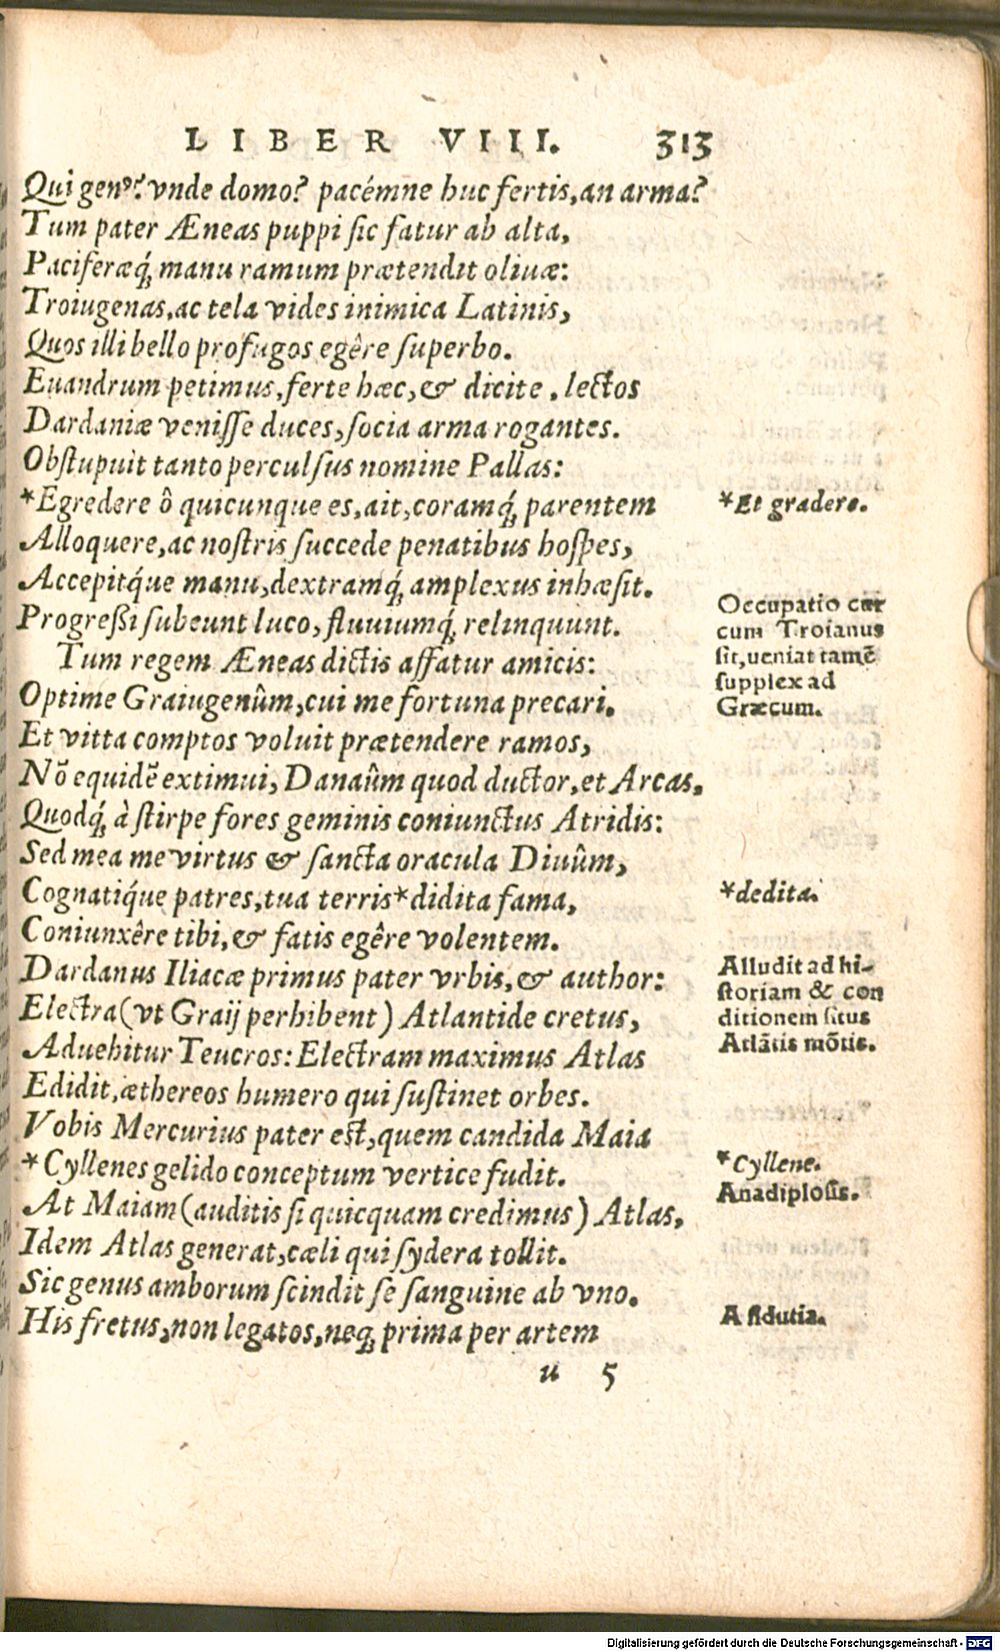 LIBER VIII. 313
Qui genꝰ? vnde domo? pacémne huc fertis, an arma?
Tum pater Æneas puppi sic fatur ab alta,
Paciferæq́; manu ramum prætendit oliuæ:
Troiugenas, ac tela vides inimica Latinis,
Quos illi bello profugos egêre superbo.
Euandrum petimus, ferte hæc, & dicite, lectos
Dardaniæ venisse duces, socia arma rogantes.
Obstupuit tanto perculsus nomine Pallas:
*Egredere ô quicunque es, ait, coramq́; parentem
*Et gradere.
Alloquere, ac nostris succede penatibus hospes,
Accepitq́ue manu, dextramq́; amplexus inhæsit.
Progreßi subeunt luco, fluuiumq́; relinquunt.
Occupatio cur
cum Troianus
sit, ueniat tamē
supplex ad
Græcum.
Tum regem Æneas dictis affatur amicis:
Optime Graiugenûm, cui me fortuna precari,
Et vitta comptos voluit prætendere ramos,
Nō equidē extimui, Danaûm quod ductor, et Arcas,
Quodq́; à stirpe fores geminis coniunctus Atridis:
Sed mea me virtus & sancta oracula Diuûm,
Cognatiq́ue patres, tua terris *didita fama,
*dedita.
Coniunxêre tibi, & fatis egêre volentem.
Dardanus Iliacæ primus pater vrbis, & author:
Electra (vt Graij perhibent) Atlantide cretus,
Aduehitur Teucros: Electram maximus Atlas
Alludit ad hi-
storiam & con
ditionem situs
Atlātis mōtis.
Edidit, æthereos humero qui sustinet orbes.
Vobis Mercurius pater est, quem candida Maia
*Cyllenes gelido conceptum vertice fudit.
*Cyllene.
At Maiam (auditis si quicquam credimus) Atlas,
Anadiplosis.
Idem Atlas generat, cæli qui sydera tollit.
Sic genus amborum scindit se sanguine ab vno.
His fretus, non legatos, neq; prima per artem
A fidutia.
u 5
Digitalisierung gefördert durch die Deutsche Forschungsgemeinschaft - DFG